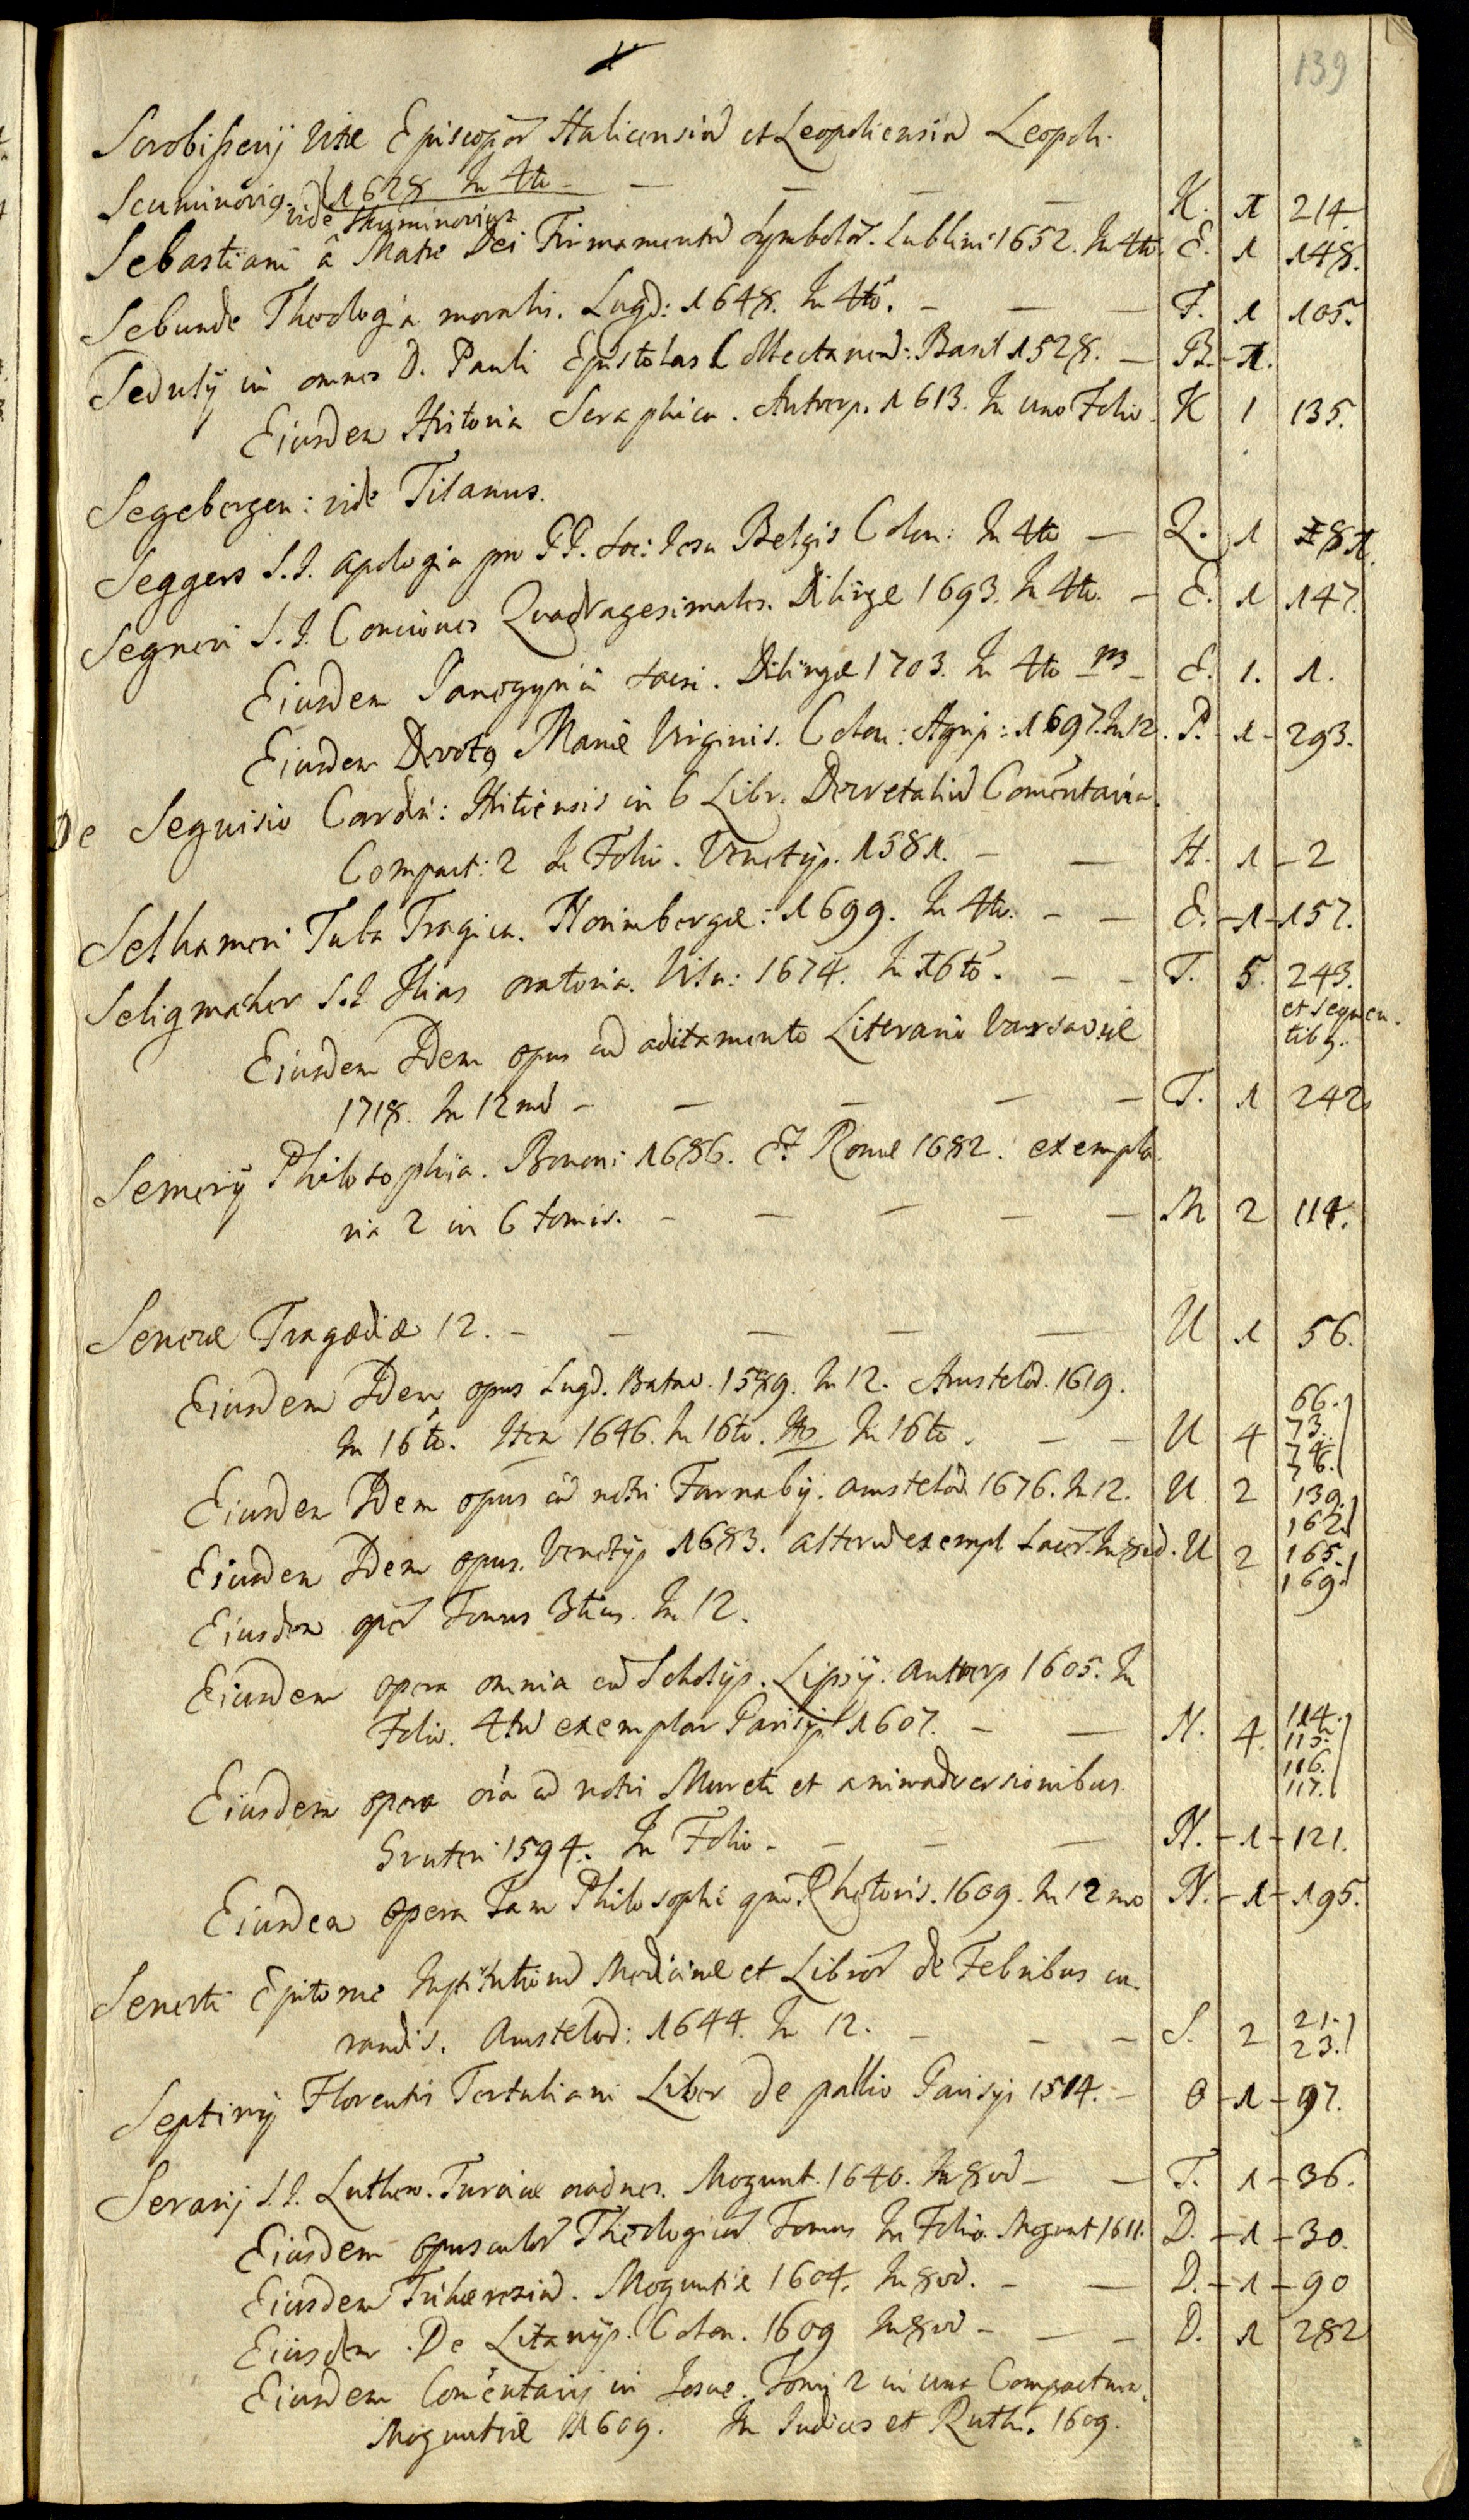 139
Scrobisseuij Vitæ Episcopor Halicensiu et Leopoliensiu Leopoli.
1628 In 4to — — — — K. 1 214
Scuminovig. vide Skuminovius
Sebastiani â Matre Dei Firmamentu Symbolor. Lublini 1652. In 4to. E. 1 148.
Sebunde Theologia moralis. Lugd: 1648. In 4tó. — — — F. 1 105.
Sedulij in omnes D. Pauli Epistolas Collectaneu: Basil 1528. — B. - 1.
Eiusdem Historia Seraphica. Antverp. 1613. In uno Folio. K 1 135.
Segebergen: vide Titanus.
Seggers S.J. apologia pro PP. Soc: Jesu Belgis Colon: In 4to — Q. 1 81.
Segneri S.J. Conciones Quadragesimales. Dilingæ 1693. In 4to. — E. 1 147.
Eiusdem Panegyrici sacri. Dilingæ 1703. In 4to — E. 1. 1.
Eiusdem Devotq Mariæ Virginis. Colon: Agrip: 1697. In 12. P. - 1 - 293.
De Segusio Cardin: Hostiensis in 6 Libr. Decretaliu Comentaria.
Compact: 2 In Folio. Venetijs. 1581. — — H. 1 - 2
Selhameri Tuba Tragica. Norimbergæ: 1699. In 4to. — — E. - 1 - 157.
Seligmacher S.J. Ilias oratoria. Viln: 1674. In 16tó. — — T. 5. 243.
et sequen.
tibq.
Eiusdem Idem opus cu aditamento Literario Varsaviæ
1718. In 12mo — — — — — T. 1 242
Semerij Philosophia. Bonon: 1686. Et Romæ 1682. exempla
ria 2 in 6 tomis. — — — — — M 2 114.
Senecæ Tragædiæ 12. — — — — — U 1 56.
Eiusdem Idem opus Lugd. Batav. 1589. In 12. Amstelod. 1619.
In 16tó. Item 1646. In 16to. In 16to. — — U 4 66. 73. 74. 76.
Eiusdem Idem opus cu notis Farnabij. amstelod. 1676. In 12. U. 2 139. 162.
Eiusdem Idem opus. Venetijs 1683. alteru exempl lacer. In 8vo. U 2 165. 169
Eiusdem oper Tomus 3tius. In 12.
Eiusdem opera omnia cu Scholijs. Lipsij. Antverp 1605. In
Folio. 4tu exemplar Parisijs 1607. — — N. 4. 114. 115. 116. 117.
Eiusdem opera oia cu notis Mureti et animadversionibus
Gruteri 1594. In Folio — — — — N. - 1 - 121.
Eiusdem opera Tam Philosophi qm Rhetoris. 1609. In 12mo N. - 1 - 195.
Senerti Epitome Institutionu Medicinæ et Libror de Febribus cu-
randis. Amstelod: 1644. In 12. — — — S. 2 21. 23.
Septimij Florentis Tertuliani Liber de pallio Parisijs 1514. — O - 1 - 97.
Serarij S.J. Luthero-Turcicæ oraones. Mogunt. 1640. In 8vo — — T. 1 - 36.
Eiusdem opusculor Theologicor Tomus In Folio. Mogunt 1611. D. - 1 - 30.
Eiusdem Trihæresiu. Moguntiæ 1604. In 8vo. — — D. - 1 - 90
Eiusdem De Litanijs. Colon. 1609 In 8vo — — — D. 1 282
Eiusdem Comentarij in Josue. Tomi 2 in una Compactura.
Moguntiæ 1609. In Judices et Ruth. 1609.